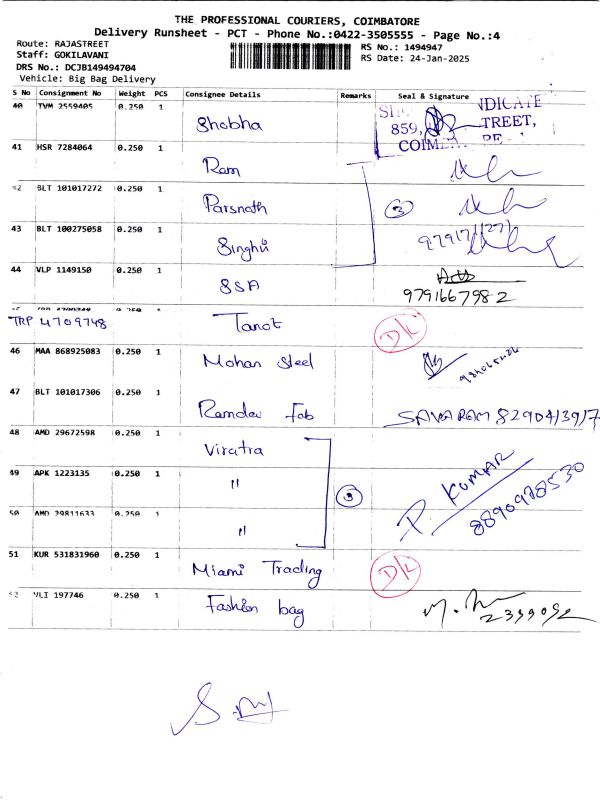 THE PROFESSIONAL COURIERS, COIMBATORE
Delivery Runsheet - PCT - Phone No.:0422-3505555 - Page No.:4
Route: RAJASTREET
Staff: GOKILAVANI
DRS No.: DCJB149494704
Vehicle: Big Bag Delivery
RS No.: 1494947
RS Date: 24-Jan-2025
S No Consignment No Weight PCS Consignee Details Remarks Seal & Signature
40 TVM 2559405 0.250 1 Shobha
NDICATE
859, TREET,
41 HSR 7284064 0.250 1 Ram
42 BLT 101017272 0.250 1 Parsnath 3
43 BLT 100275058 0.250 1 Singhvi
44 VLP 1149150 0.250 1 SSA 9791667982
TRP 4709748 Tanot D/L
46 MAA 868925083 0.250 1 Mohan Steel
47 BLT 101017306 0.250 1 Ramdev Fab
48 AMD 29672598 0.250 1 Viratra
49 APK 1223135 0.250 1 " 3 P. KUMAR
50 AMD 29811633 0.250 1 " 8890928530
51 KUR 531831960 0.250 1 Miami Trading D/L
52 VLI 197746 0.250 1 Fashion bag